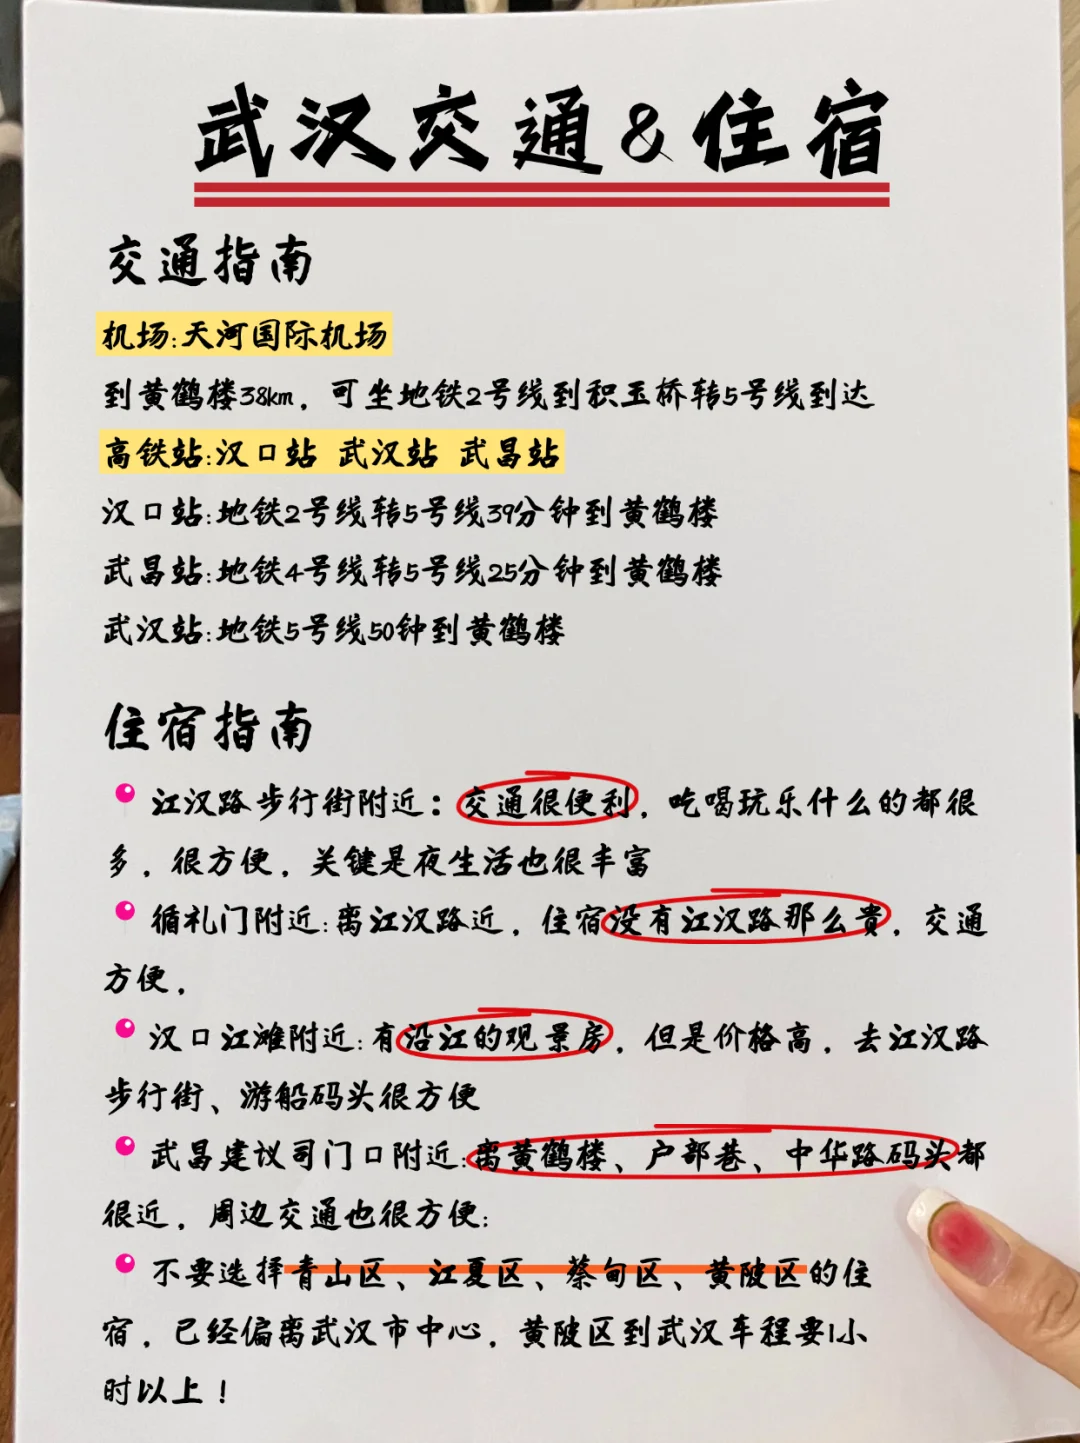 武汉交通&住宿
交通指南
机场:天河国际机场
到黄鹤楼38km，可坐地铁2号线到积玉桥转5号线到达
高铁站:汉口站 武汉站 武昌站
汉口站:地铁2号线转5号线39分钟到黄鹤楼
武昌站:地铁4号线转5号线25分钟到黄鹤楼
武汉站:地铁5号线50钟到黄鹤楼
住宿指南
江汉路步行街附近：交通很便利，吃喝玩乐什么的都很
多，很方便，关键是夜生活也很丰富
循礼门附近:离江汉路近，住宿没有江汉路那么贵，交通
方便，
汉口江滩附近:有沿江的观景房，但是价格高，去江汉路
步行街、游船码头很方便
武昌建议司门口附近:离黄鹤楼、户部巷、中华路码头都
很近，周边交通也很方便;
不要选择青山区、江夏区、蔡甸区、黄陂区的住
宿，已经偏离武汉市中心，黄陂区到武汉车程要1小
时以上！